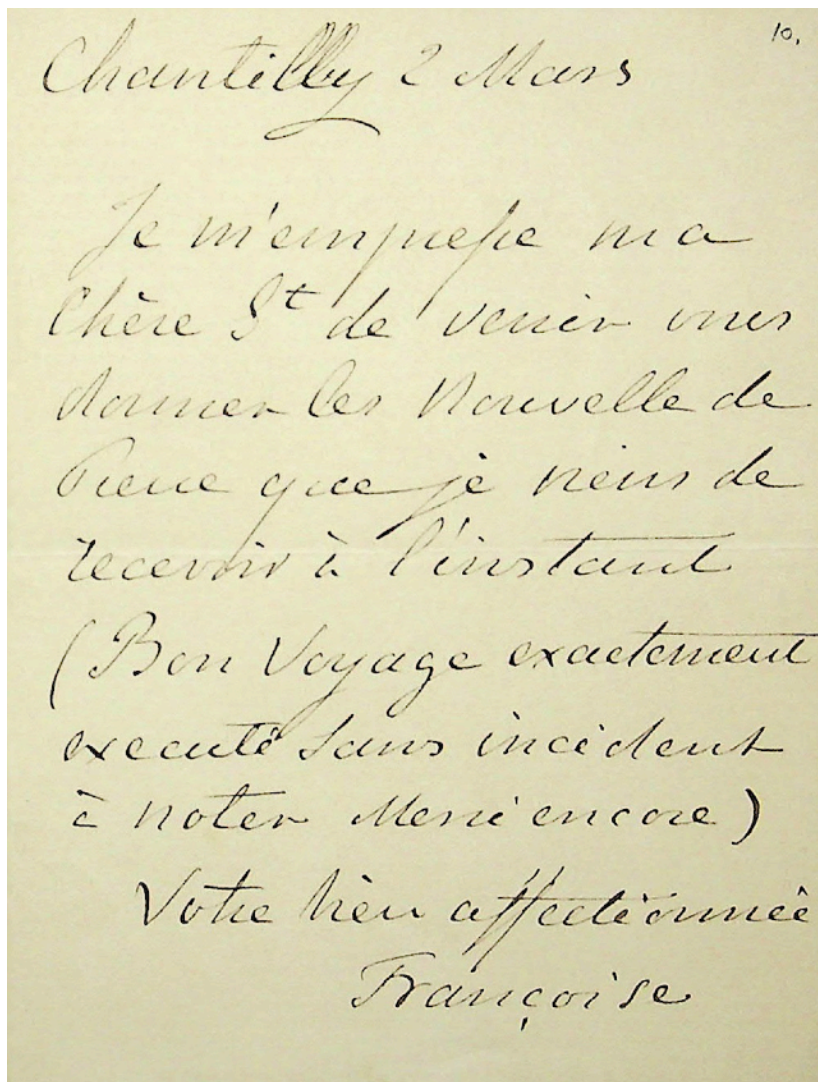 10.
Chantilly 2 Mars
Je m'empresse ma
Chère St de venir vous
donner les Nouvelle de
Pierre que je viens de
recevoir à l'instant
(Bon Voyage exactement
executé sans incident
à noter Merci encore)
Votre bien affectionnée
Françoise